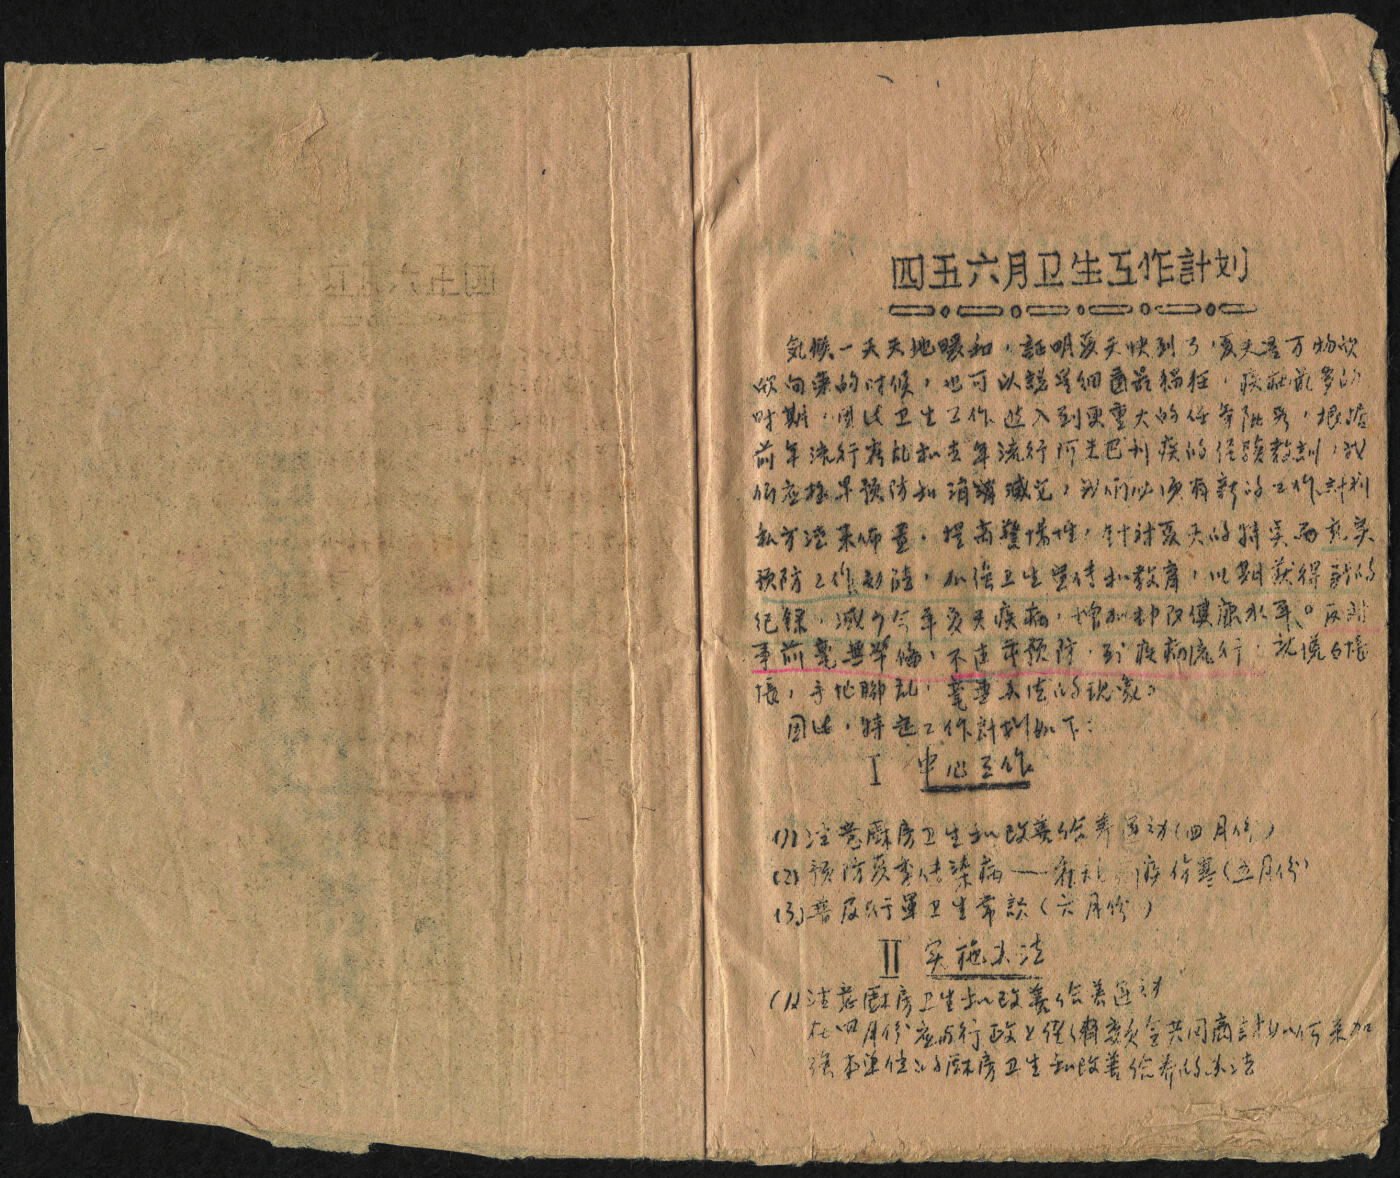 四五六月卫生工作計划
気候一天天地暖和，証明夏天快到了，夏天是万物欣
欣向荣的时候，也可以説是细菌最猖狂，疾病最多的
时期，因此卫生工作进入到更重大的任务阶段，根据
前年流行霍乱和去年流行阿米巴利疾的经驗教訓，我
们应提早预防和消灭，我们必须有新的工作計划
和方法来佈置，提高警惕性，针对夏天的特実而充実
预防工作切陸，加强卫生宣传和教育，以期获得新的
纪録，减少今年夏天疾病，增加部队健康水平。反对
事前毫無準偹，不注重预防，到疾病流行，就慌慌張
張，手忙脚乱，毫無办法的现象。
因此，特起工作計划如下：
I 中心工作
(1) 注意厨房卫生和改善给养运动（四月份）
(2) 预防夏季传染病——霍乱 疾伤寒（五月份）
(3) 普及行軍卫生常識（六月份）
II 实施办法
(1) 注意厨房卫生和改善给养运动
在四月份应与行政上经济委員会共同商討如何来加
强本单位的厨房卫生和改善给养的办法